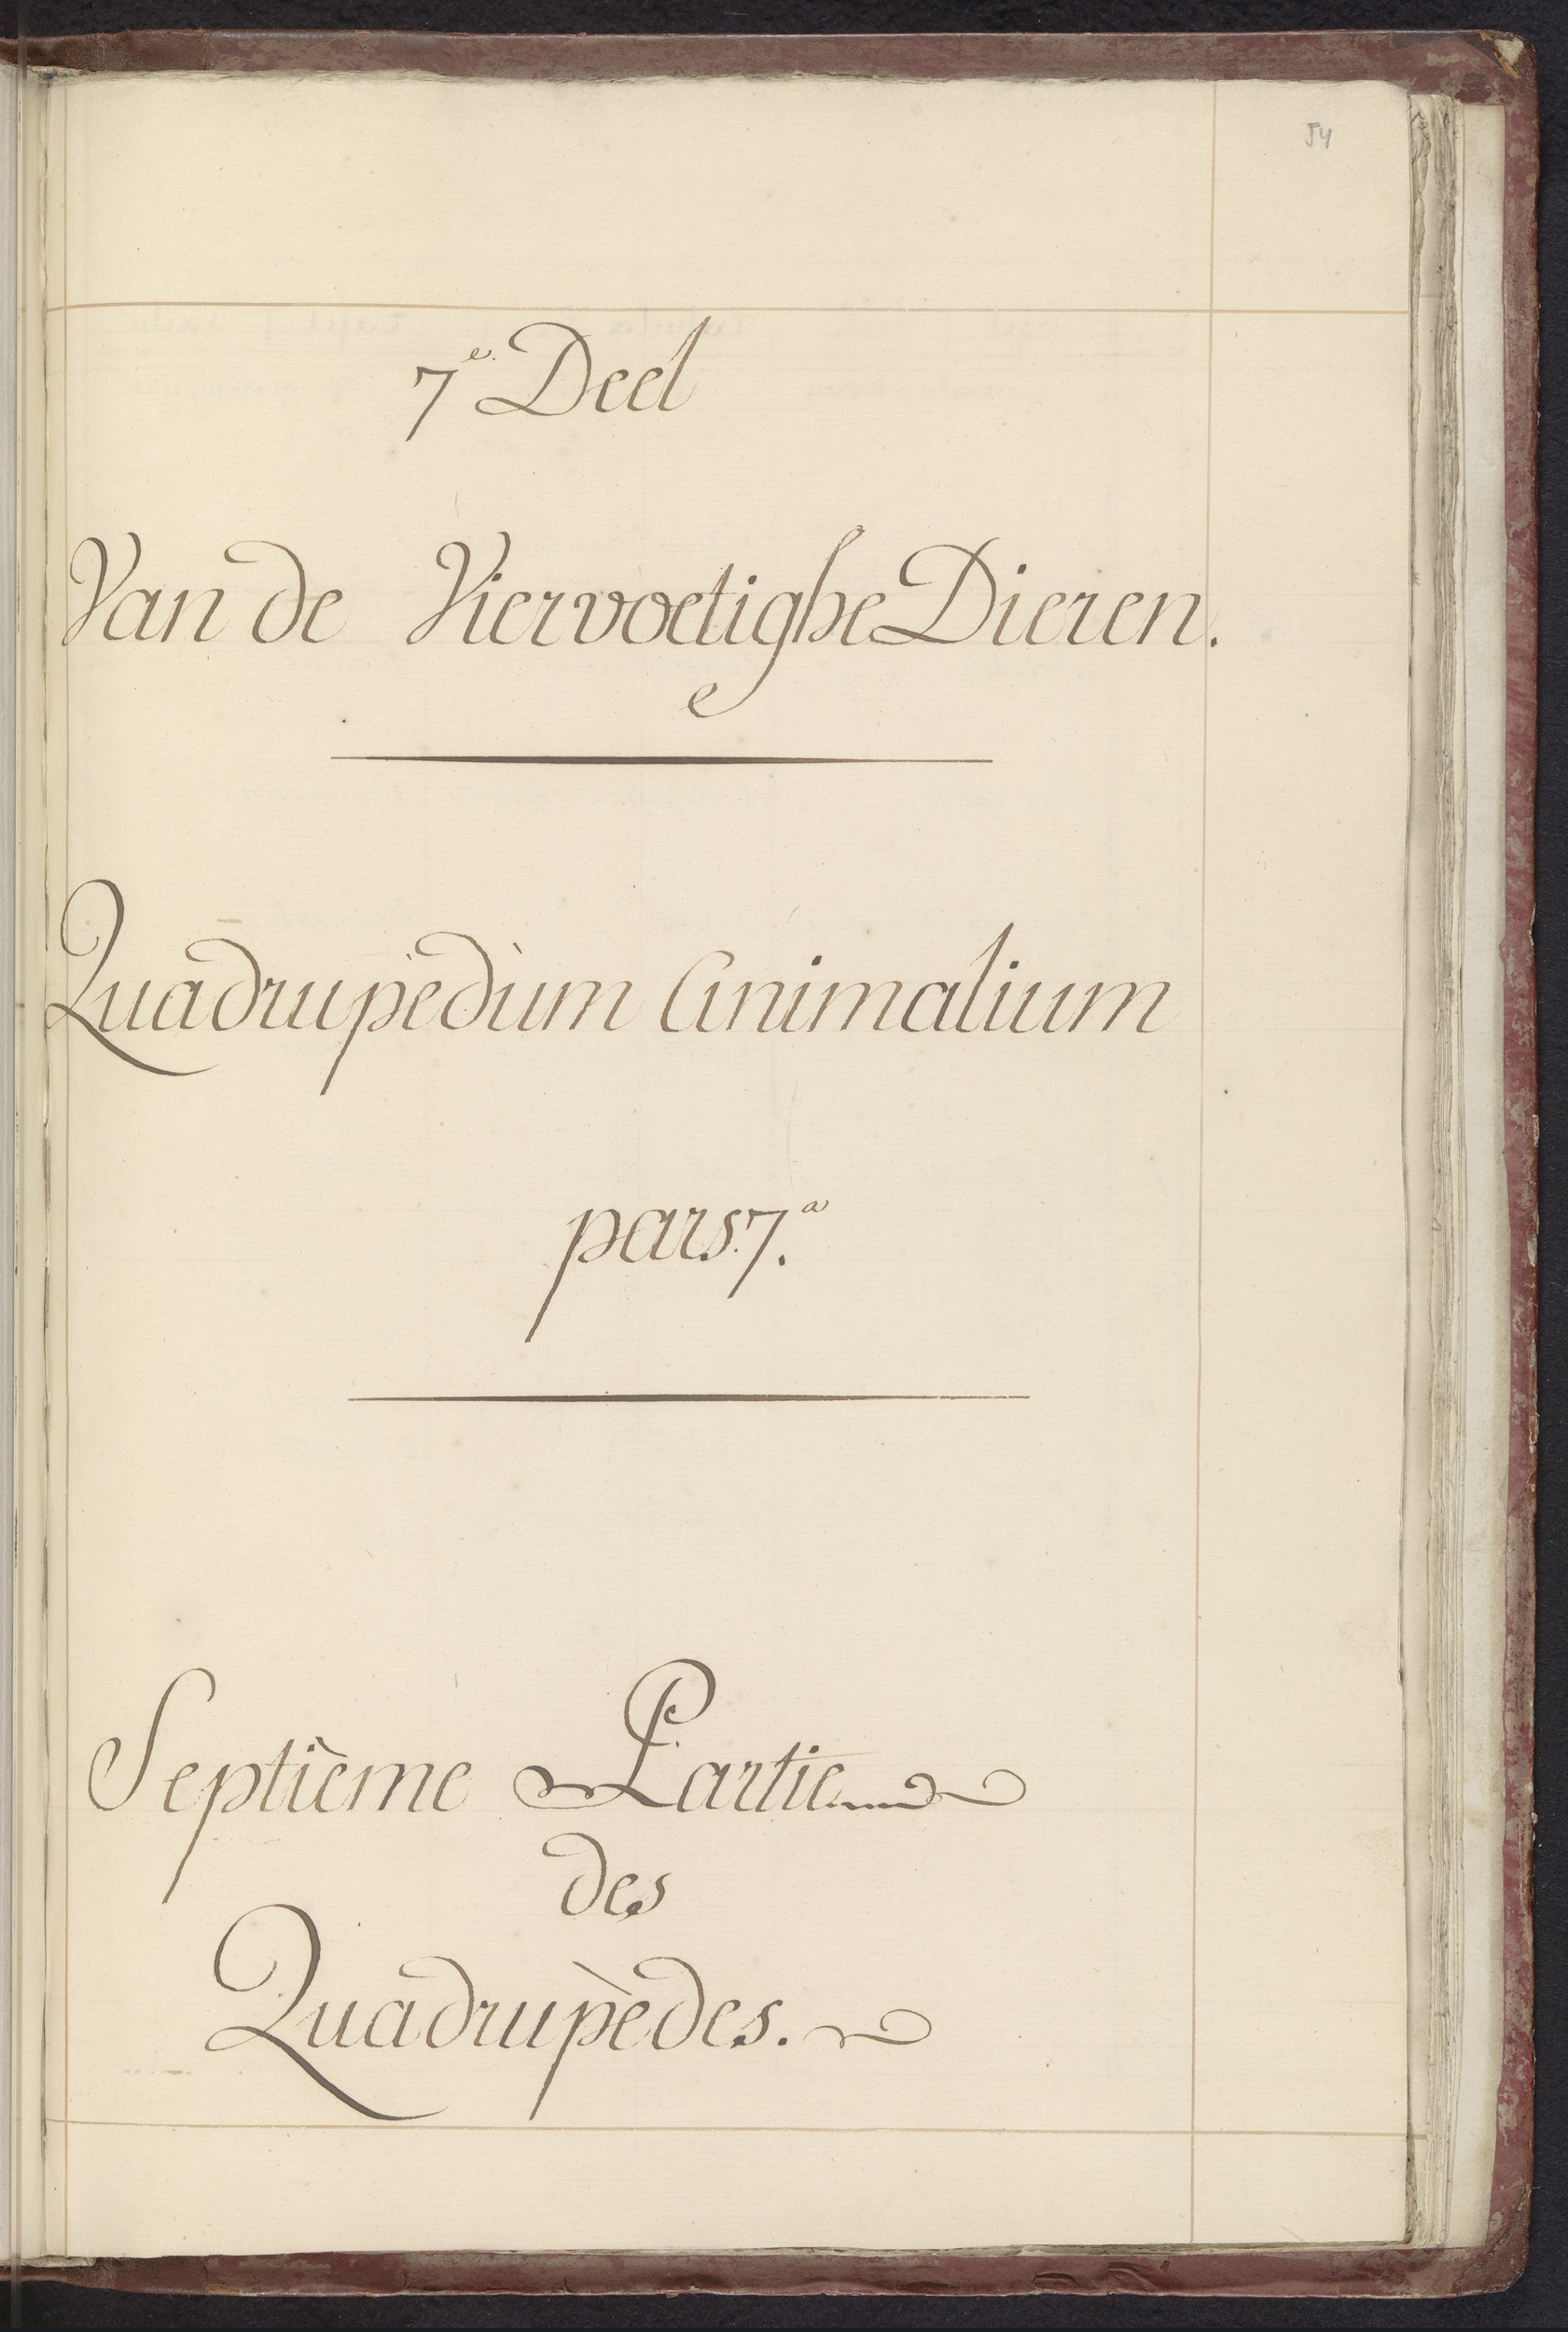 54
7e. Deel
Van de Viervoetighe Dieren.
Quadrupedum Animalium
pars. 7.a
Septième Partie
des
Quadrupèdes.